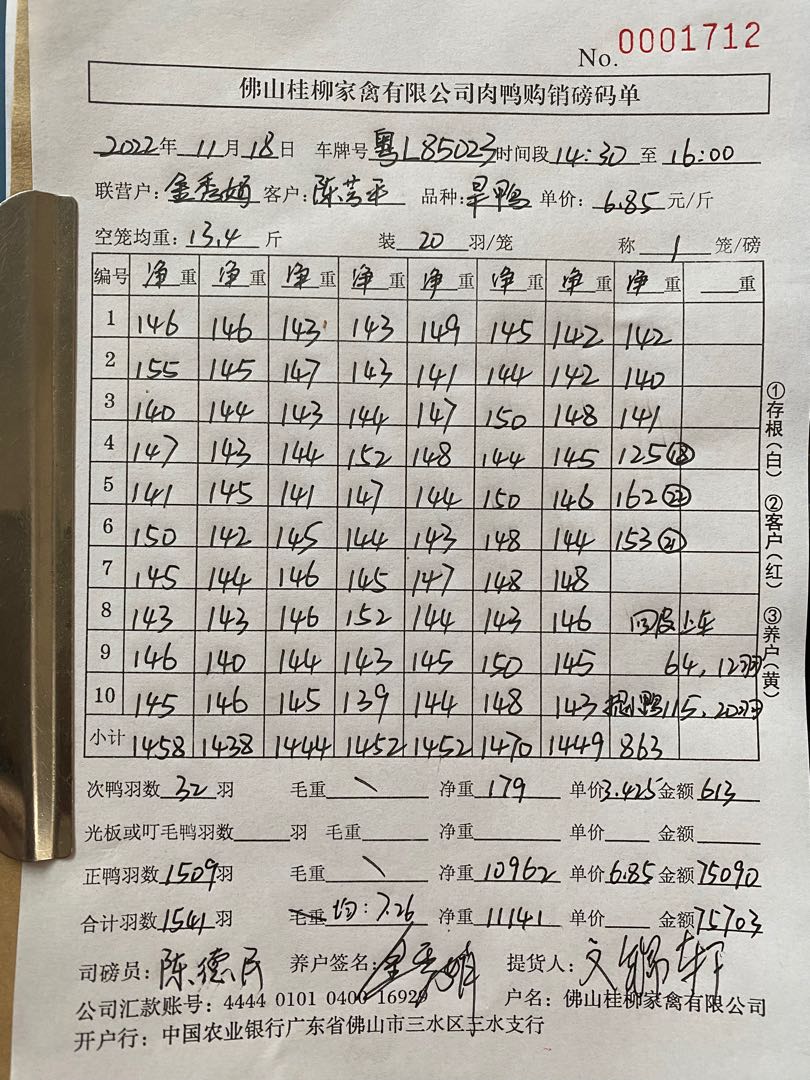 No. 0001712
佛山桂柳家禽有限公司肉鸭购销磅码单
2022年 11月 18日 车牌号 粤L85023 时间段 14:30 至 16:00
联营户: 客户: 品种: 旱鸭 单价: 6.85 元/斤
空笼均重: 13.4 斤 装 20 羽/笼 称 1 笼/磅
编号 净重 净重 净重 净重 净重 净重 净重 净重 重
1 146 146 143 143 149 145 142 142
2 155 145 147 143 141 144 142 140
3 140 144 143 144 147 150 148 141
4 147 143 144 152 148 144 145 125⑱
5 141 145 141 147 144 150 146 162㉒
6 150 142 145 144 143 148 144 153㉑
7 145 144 146 145 147 148 148
8 143 143 146 152 144 143 146 回皮上车
9 146 140 144 143 145 150 145 64,12羽
10 145 146 145 139 144 148 143 鸭115,20羽
小计 1458 1438 1444 1452 1452 1470 1449 863
①存根(白) ②客户(红) ③养户(黄)
次鸭羽数 32 羽 毛重 \ 净重 179 单价 3.425 金额 613
光板或叮毛鸭羽数 羽 毛重 净重 单价 金额
正鸭羽数 1509羽 毛重 \ 净重 10962 单价 6.85 金额 75090
合计羽数 1541 羽 毛重 均:7.26 净重 11141 单价 金额 75703
司磅员: 陈德民 养户签名: 提货人:
公司汇款账号: 4444 0101 0400 16929 户名: 佛山桂柳家禽有限公司
开户行: 中国农业银行广东省佛山市三水区三水支行